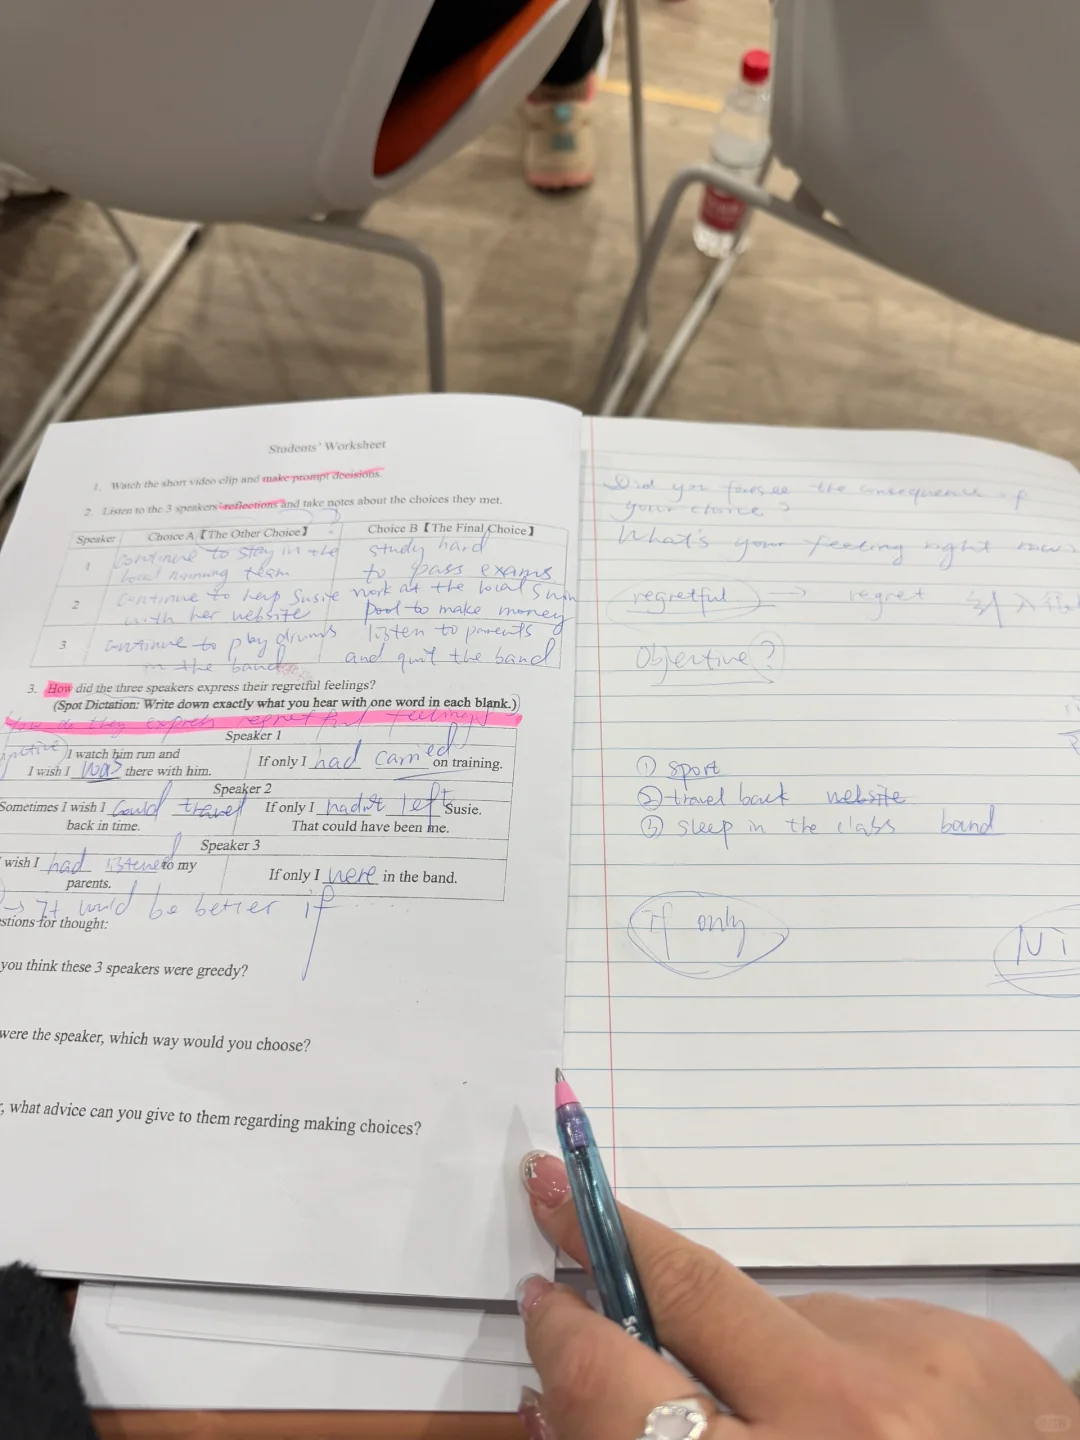 Students' Worksheet
1. Watch the short video clip and make prompt decisions.
2. Listen to the 3 speakers' reflections and take notes about the choices they met.
Speaker
Choice A【The Other Choice】
Choice B【The Final Choice】
1
continue to stay in the
local running team
study hard
to pass exams
2
continue to help Susie
with her website
work at the local swim
pool to make money
3
continue to play drums
in the band
listen to parents
and quit the band
3. How did the three speakers express their regretful feelings?
(Spot Dictation: Write down exactly what you hear with one word in each blank.)
How do they express regretful feelings
Speaker 1
I watch him run and
I wish I was there with him.
If only I had carried on training.
Speaker 2
Sometimes I wish I could travel
back in time.
If only I hadn't left Susie.
That could have been me.
Speaker 3
wish I had listened to my
parents.
If only I were in the band.
→ It would be better if ......
estions for thought:
you think these 3 speakers were greedy?
were the speaker, which way would you choose?
, what advice can you give to them regarding making choices?
Did you foresee the consequence of
your choice?
What's your feeling right now
regretful → regret
Objective?
① sport
② travel back website
③ sleep in the class band
if only